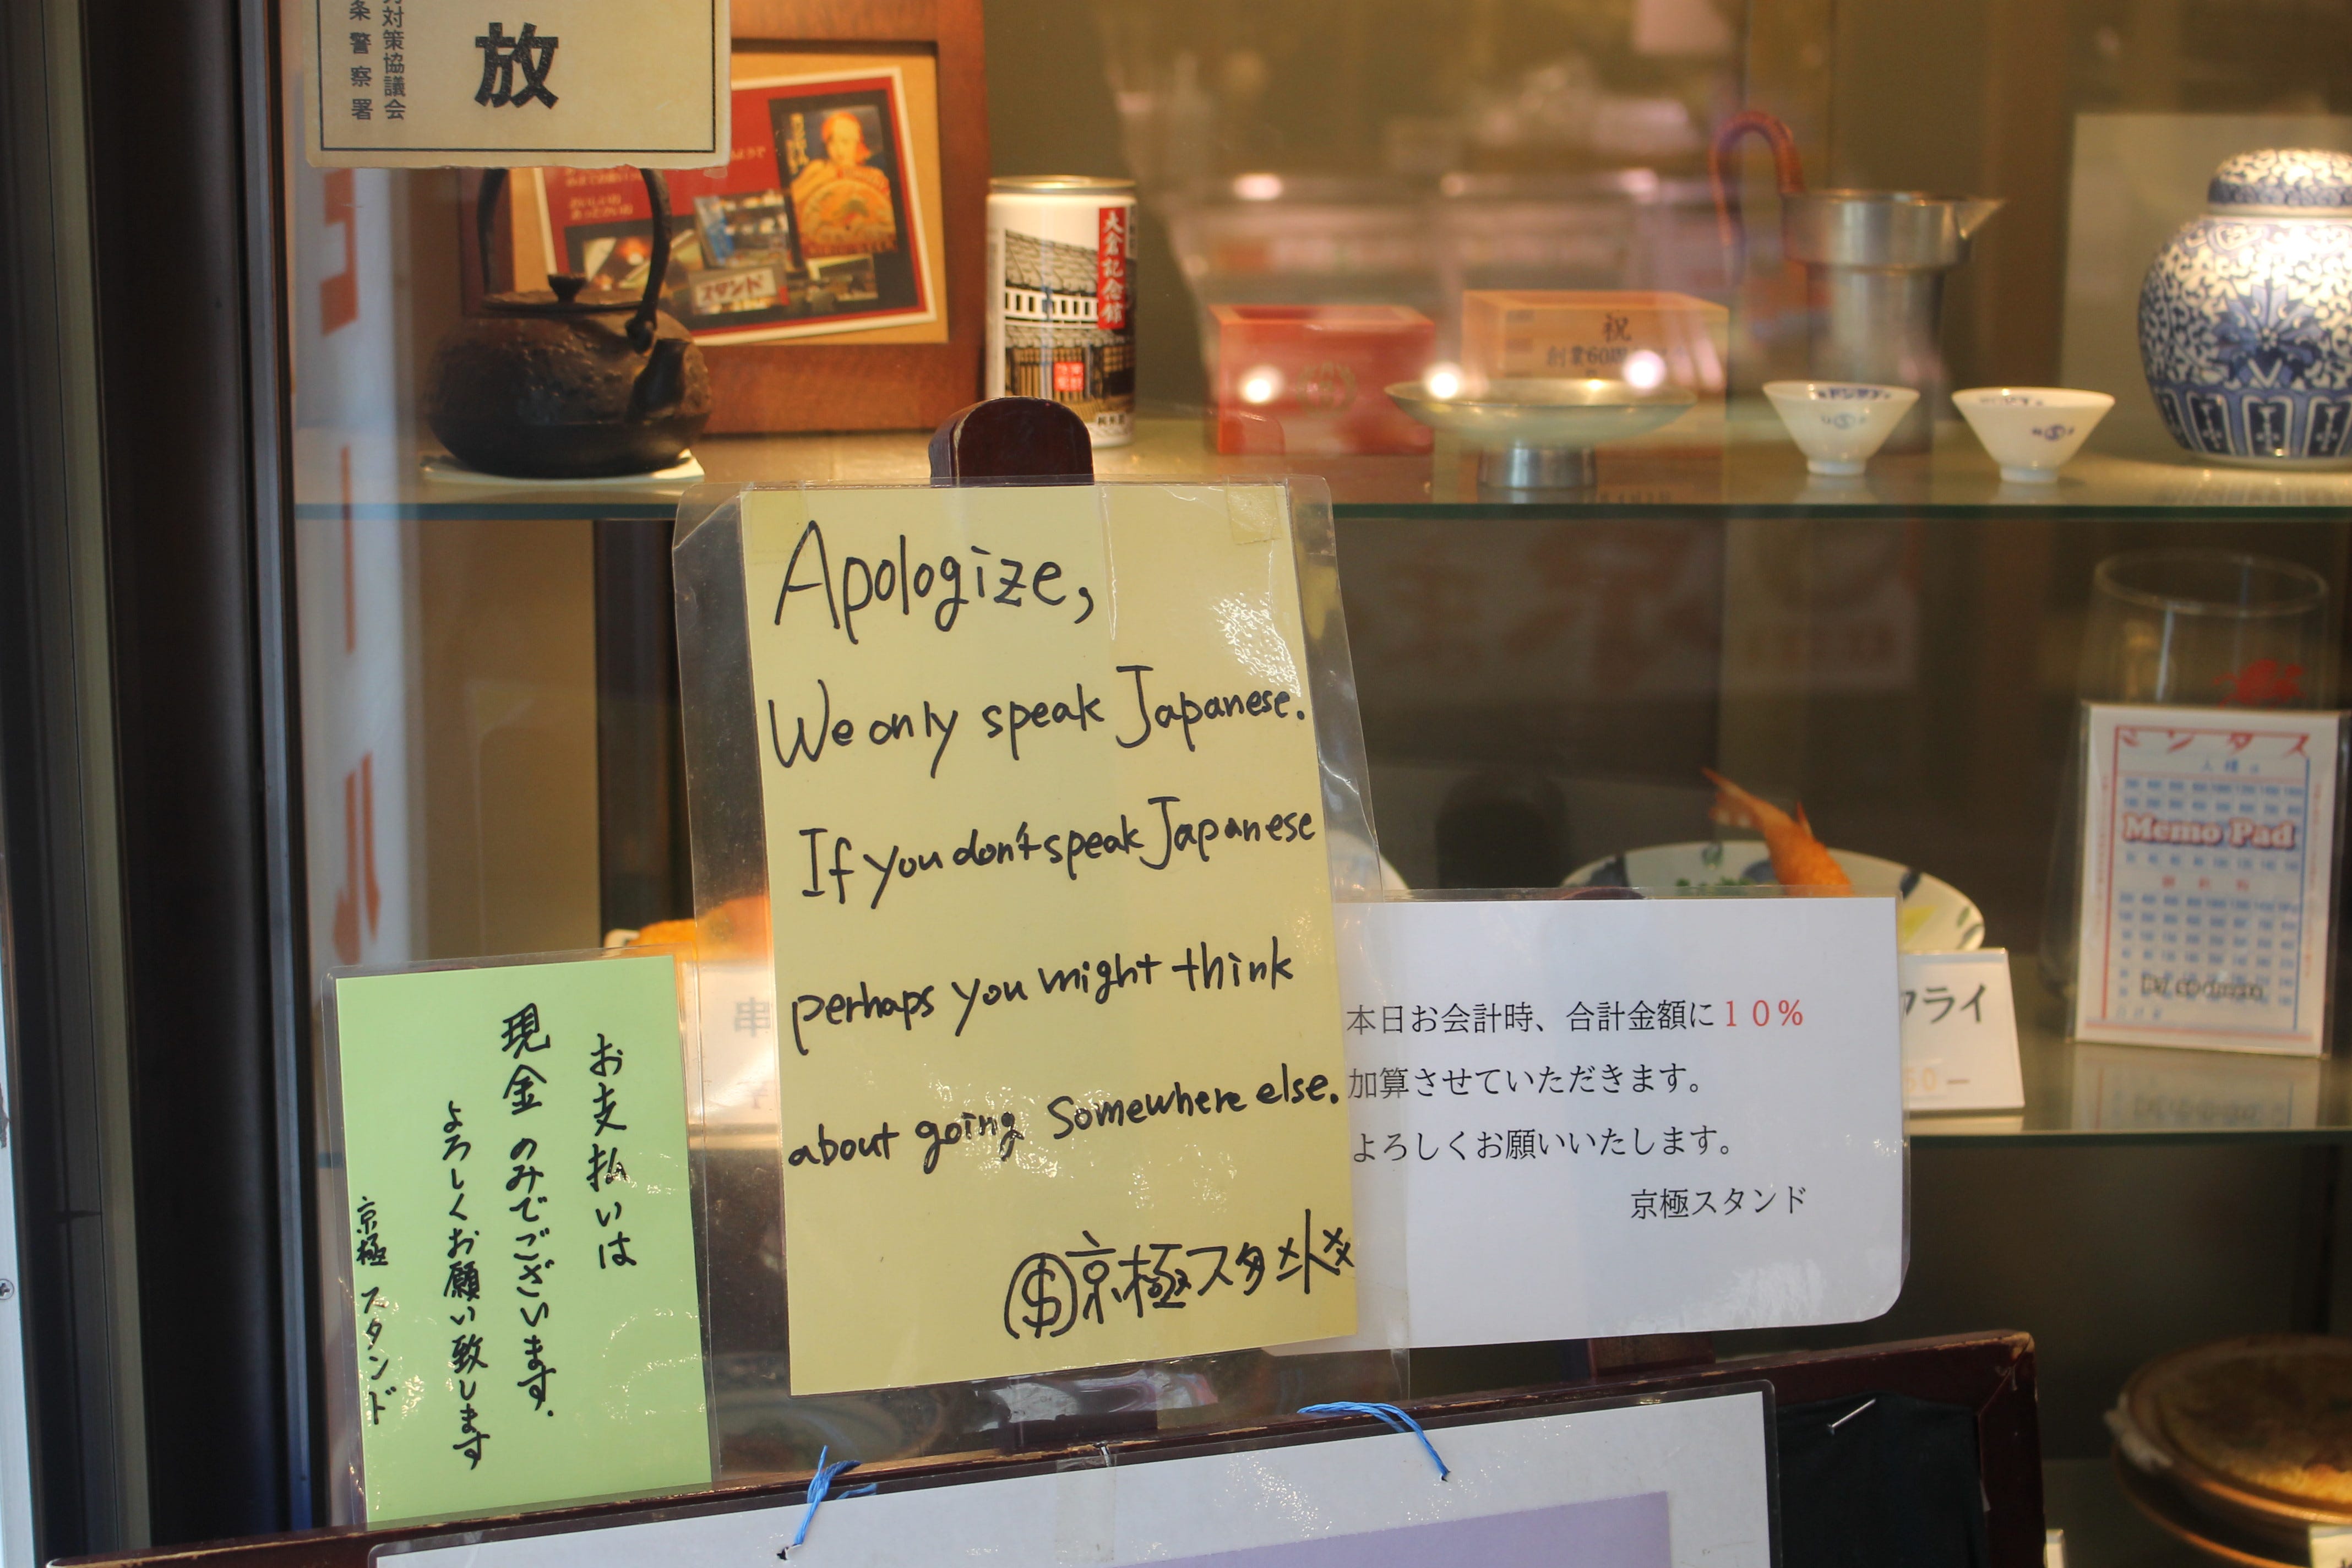 対策協議会
条警察署
放
スタンド
大倉記念館
祝
Apologize,
We only speak Japanese.
If you don't speak Japanese
perhaps you might think
about going somewhere else.
京極スタンド
お支払いは
現金のみでございます.
よろしくお願い致します
京極スタンド
本日お会計時、合計金額に10%
加算させていただきます。
よろしくお願いいたします。
京極スタンド
串
フライ
Memo Pad